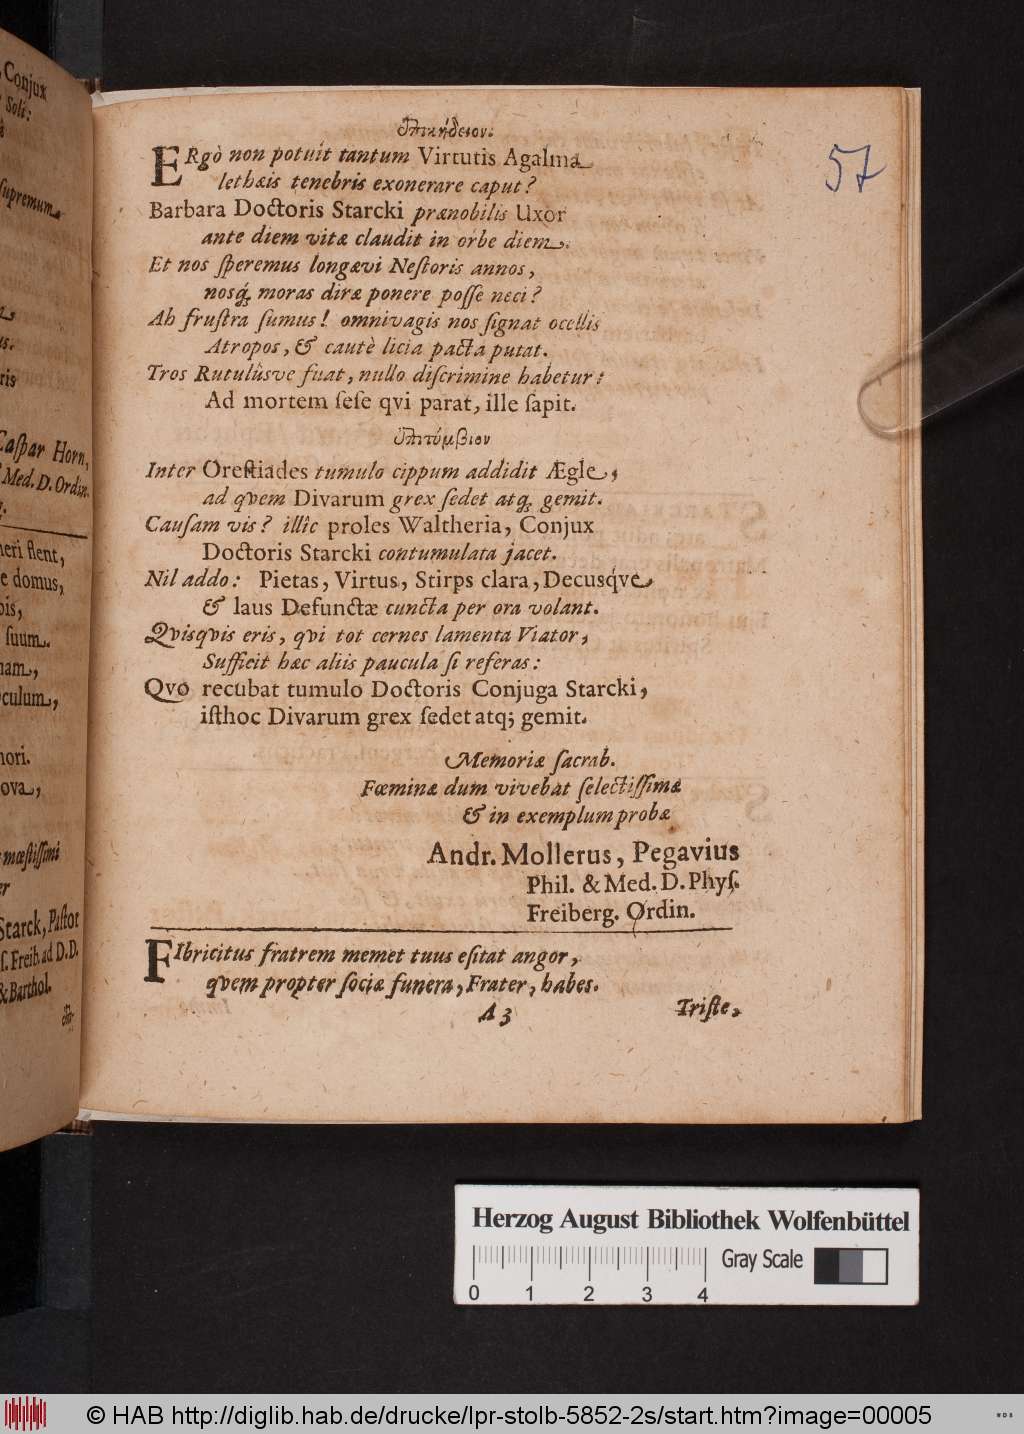 Conjux
Soli:
supremum
us.
ris
Caspar Horn,
Med. D. Ordin.
neri flent,
e domus,
suum.
nam,
culum,
nori.
ova,
mœstissimi
er
Starck, Pastor
s. Freib. ad D.D.
& Barthol.
Ἐπικήδειον.
57
ERgò non potuit tantum Virtutis Agalma
lethæis tenebris exonerare caput?
Barbara Doctoris Starcki prænobilis Uxor
ante diem vitæ claudit in orbe diem.
Et nos speremus longævi Nestoris annos,
nosq; moras diræ ponere posse neci?
Ah frustra sumus! omnivagis nos signat ocellis
Atropos, & cautè licia pacta putat.
Tros Rutulúsve fuat, nullo discrimine habetur:
Ad mortem sese qvi parat, ille sapit.
Ἐπιτύμβιον
Inter Orestiades tumulo cippum addidit Ægle,
ad qvem Divarum grex sedet atq; gemit.
Causam vis? illîc proles Waltheria, Conjux
Doctoris Starcki contumulata jacet.
Nil addo: Pietas, Virtus, Stirps clara, Decusq́ve
& laus Defunctæ cuncta per ora volant.
Qvisqvis eris, qvi tot cernes lamenta Viator,
Sufficit hæc aliis paucula si referas:
Qvo recubat tumulo Doctoris Conjuga Starcki,
isthoc Divarum grex sedet atq; gemit.
Memoriæ sacrab.
Fœminæ dum vivebat selectissimæ
& in exemplum probæ
Andr. Mollerus, Pegavius
Phil. & Med. D. Phys.
Freiberg. Ordin.
FIbricitus fratrem memet tuus esitat angor,
qvem propter sociæ funera, Frater, habes.
A 3 Triste,
Herzog August Bibliothek Wolfenbüttel
Gray Scale
0 1 2 3 4
© HAB http://diglib.hab.de/drucke/lpr-stolb-5852-2s/start.htm?image=00005